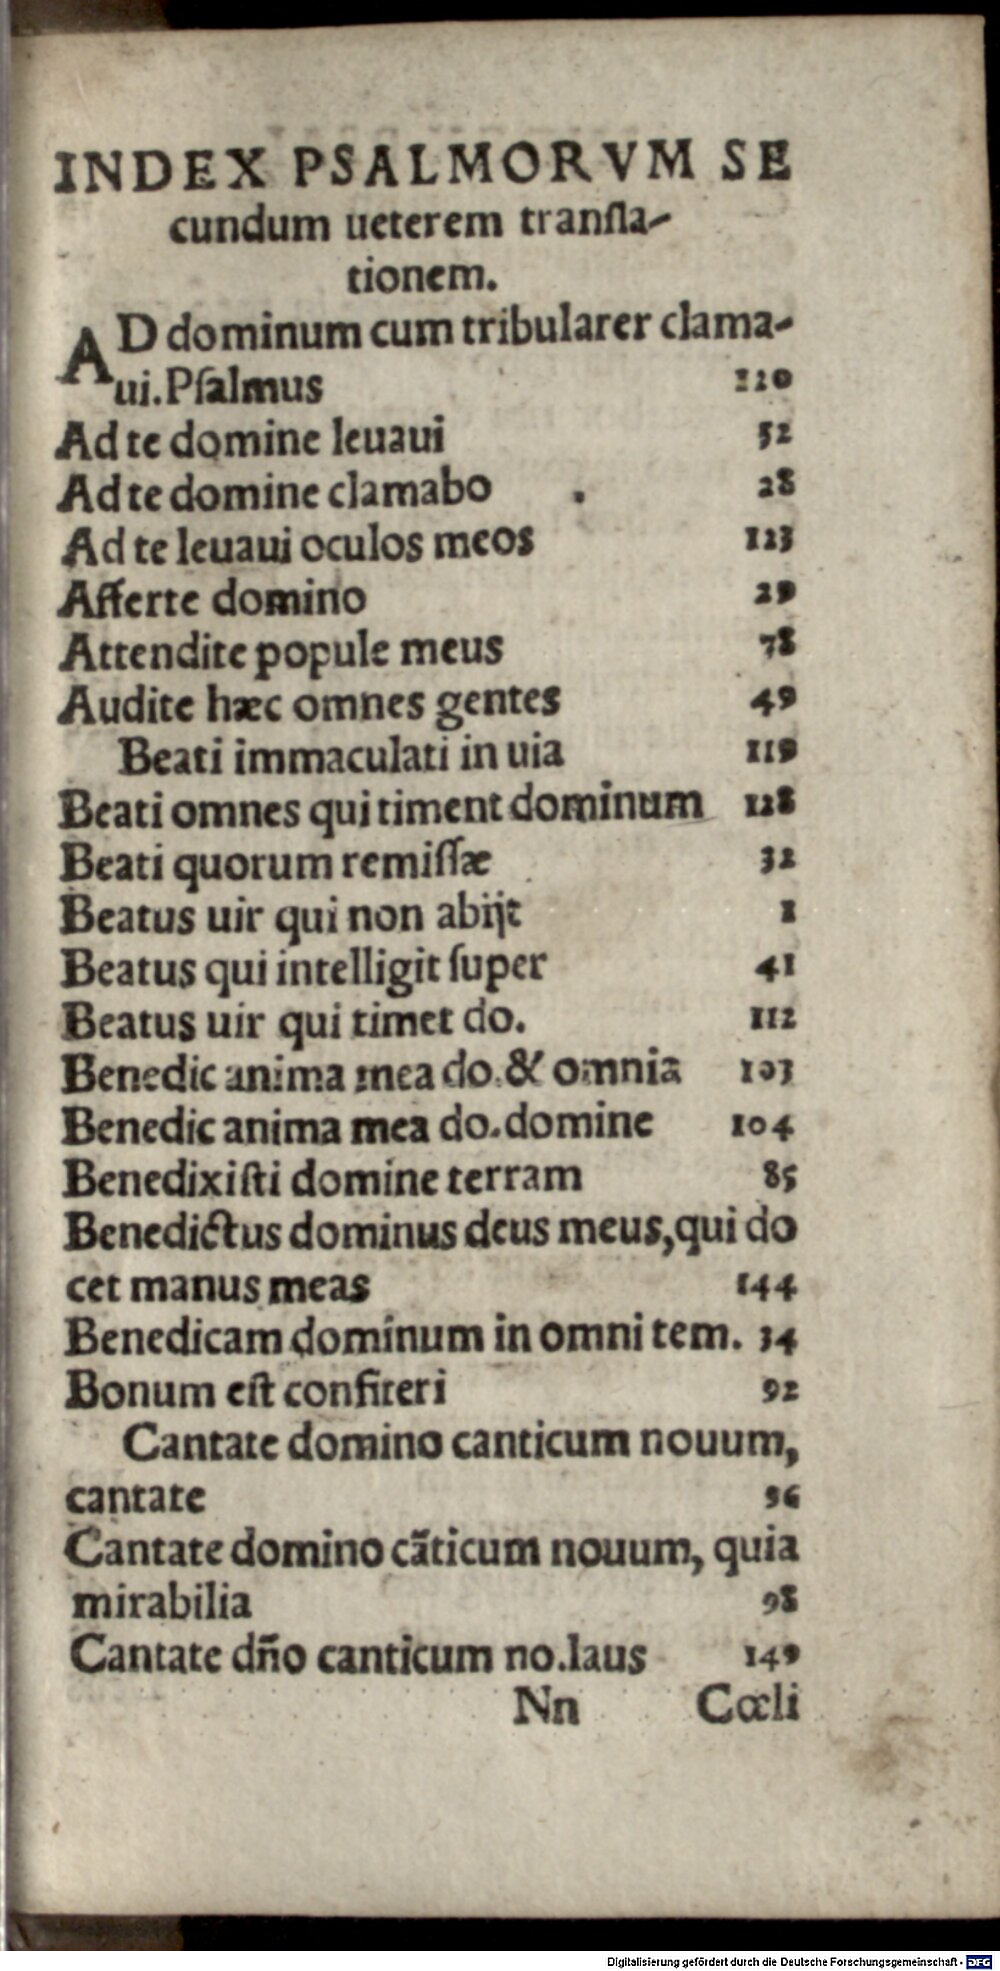 INDEX PSALMORVM SE
cundum ueterem tranſla-
tionem.
AD dominum cum tribularer clama-
ui. Pſalmus 120
Ad te domine leuaui 52
Ad te domine clamabo 28
Ad te leuaui oculos meos 123
Afferte domino 29
Attendite popule meus 78
Audite hæc omnes gentes 49
Beati immaculati in uia 119
Beati omnes qui timent dominum 128
Beati quorum remiſſæ 32
Beatus uir qui non abijt 1
Beatus qui intelligit ſuper 41
Beatus uir qui timet do. 112
Benedic anima mea do. & omnia 103
Benedic anima mea do. domine 104
Benedixiſti domine terram 85
Benedictus dominus deus meus, qui do
cet manus meas 144
Benedicam dominum in omni tem. 34
Bonum eſt confiteri 92
Cantate domino canticum nouum,
cantate 96
Cantate domino cāticum nouum, quia
mirabilia 98
Cantate dño canticum no. laus 149
Nn Cœli
Digitalisierung gefördert durch die Deutsche Forschungsgemeinschaft - DFG